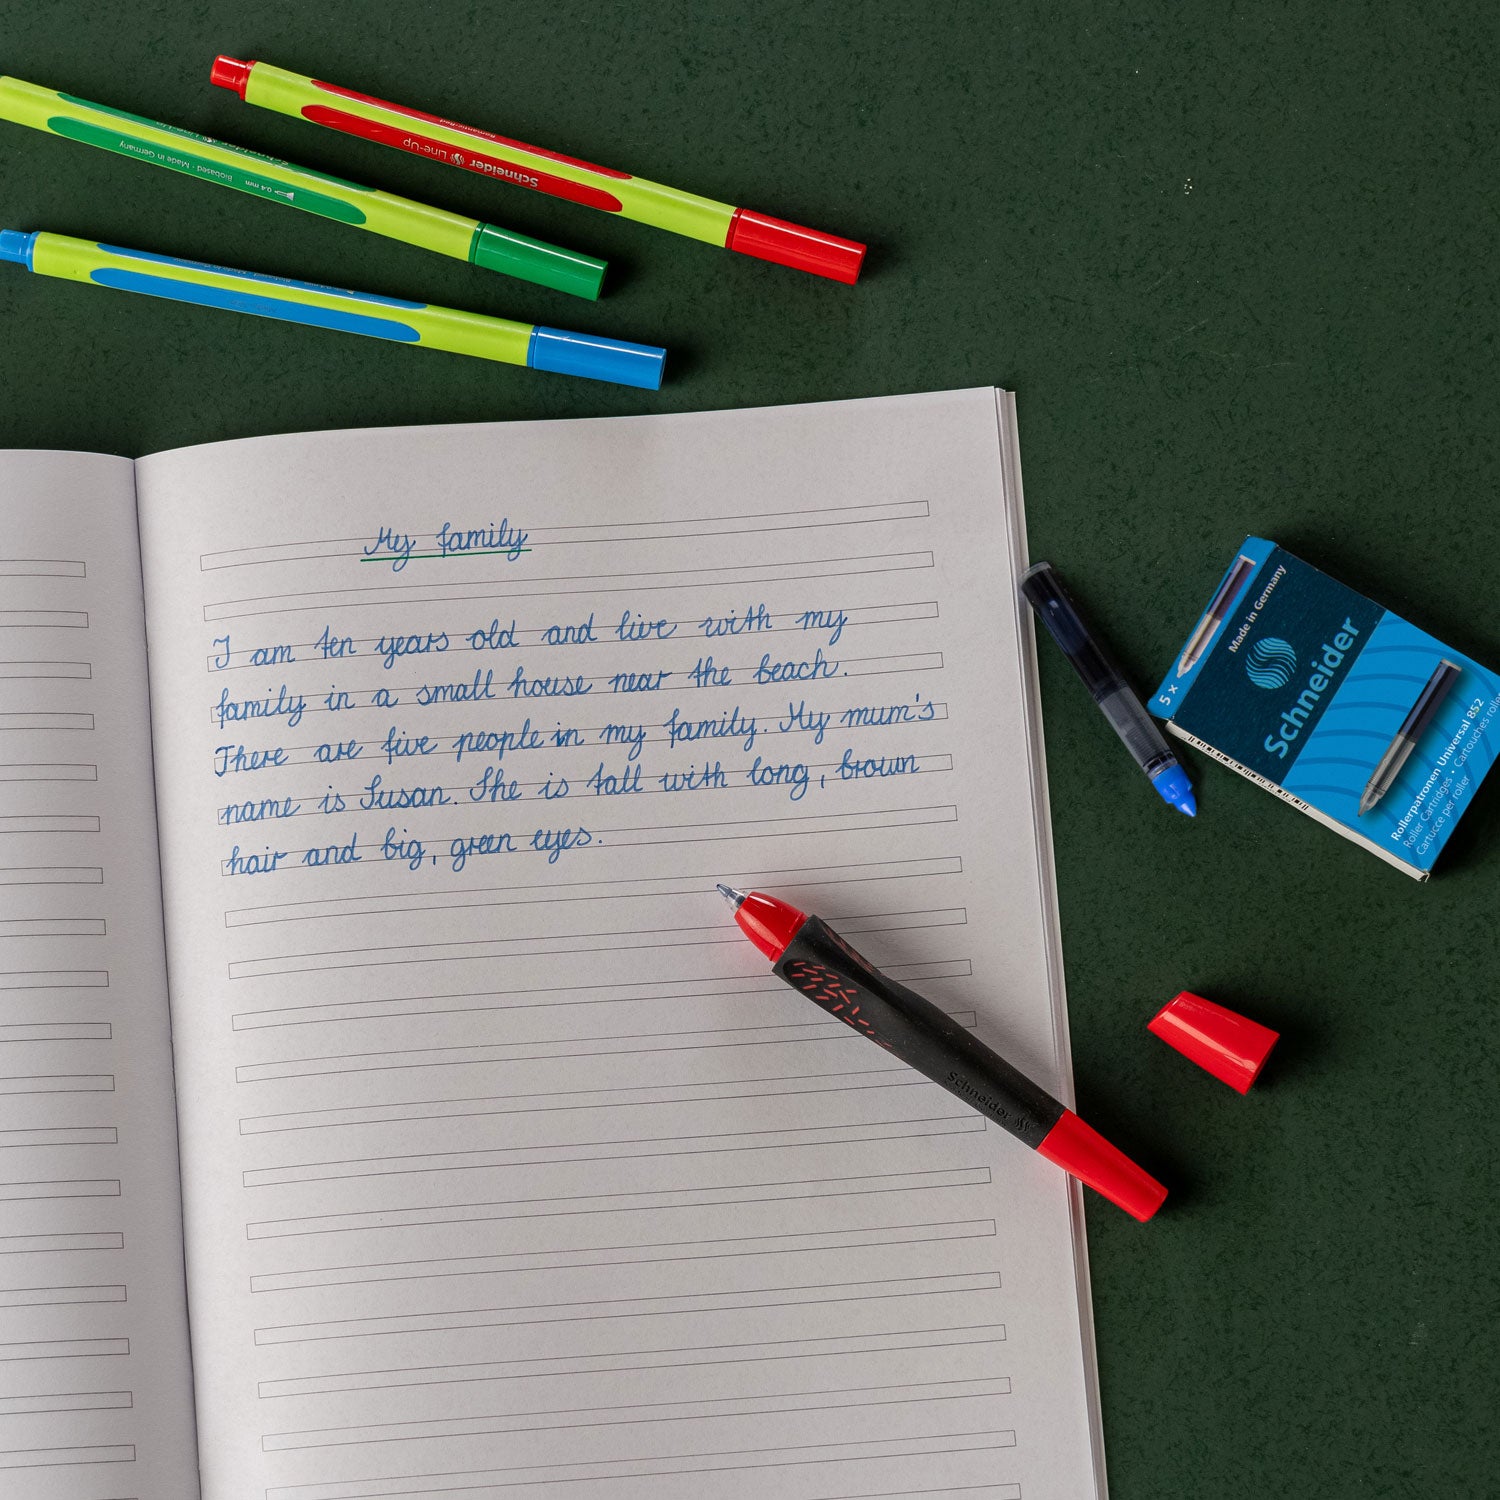 Romantic-Red
Schneider Line-Up
Schneider Line-Up
0.4 mm Biobased · Made in Germany
My family
I am ten years old and live with my
family in a small house near the beach.
There are five people in my family. My mum's
name is Susan. She is tall with long, brown
hair and big, green eyes.
Schneider
5 x
Made in Germany
Schneider
Rollerpatronen Universal 852
Roller Cartridges • Cartouches
Cartucce per roller